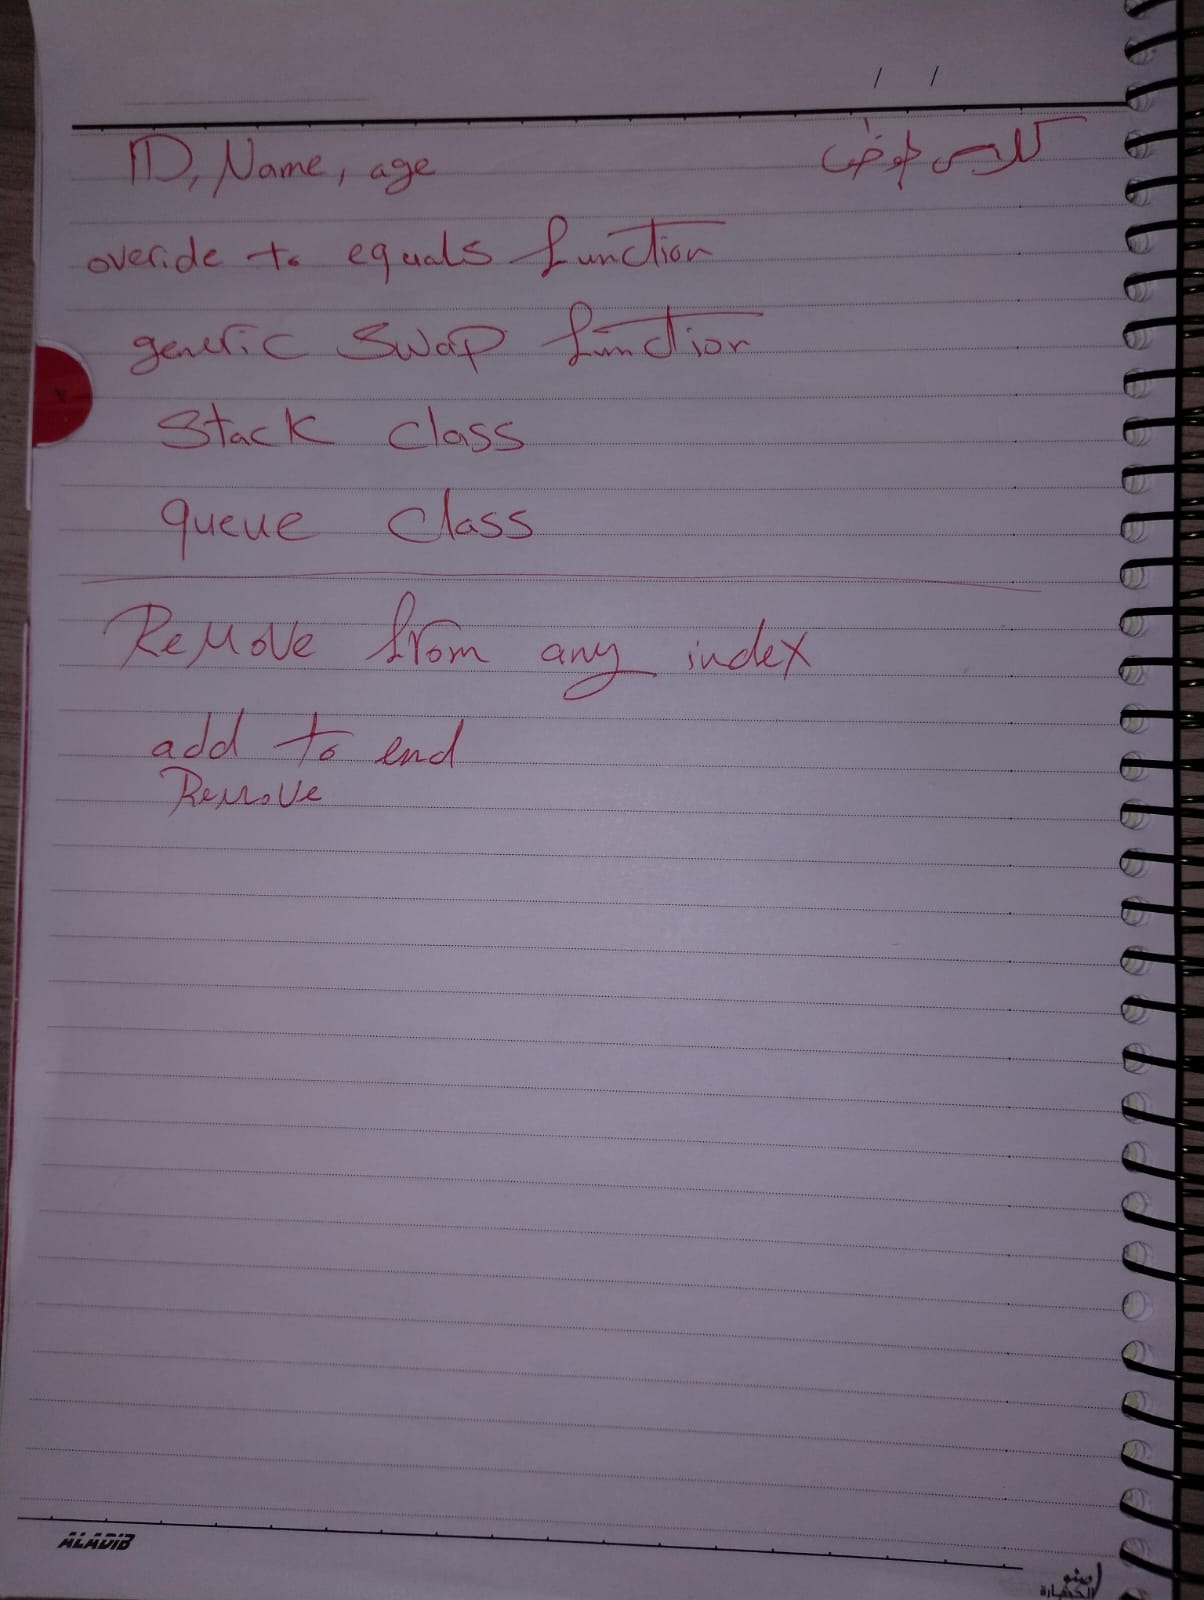 / /
ID, Name, age كلاس
overide to equals function
generic Swap function
Stack class
queue class
Remove from any index
add to end
Remove
ALADIB